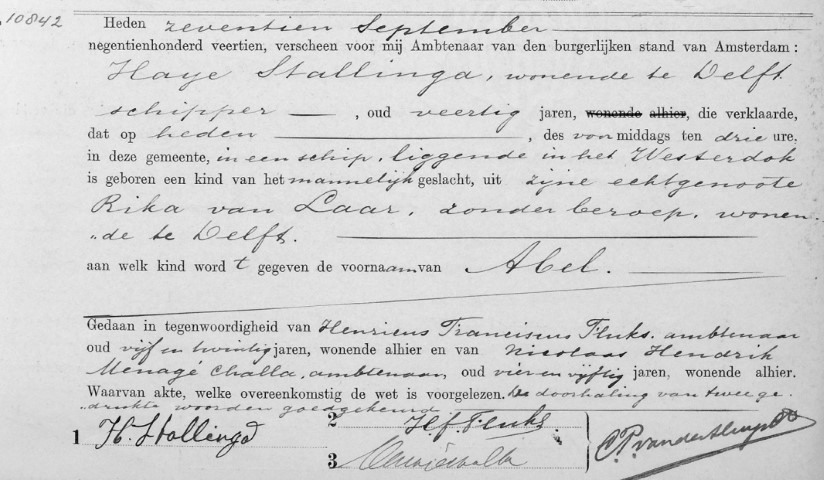 10842
Heden zeventien September
negentienhonderd veertien, verscheen voor mij Ambtenaar van den burgerlijken stand van Amsterdam :
Haye Stallinga, wonende te Delft
schipper , oud veertig jaren, wonende alhier, die verklaarde,
dat op heden , des voormiddags ten drie ure.
in deze gemeente, in een schip, liggende in het Westerdok
is geboren een kind van het mannelijk geslacht, uit zijne echtgenoote
Rika van Laar, zonder beroep, wonen-
„de te Delft.
aan welk kind wordt gegeven de voornaam van Abel.
Gedaan in tegenwoordigheid van Henricus Franciscus Fluks, ambtenaar
oud vijf en twintig jaren, wonende alhier en van Nicolaas Hendrik
Menagé Challa, ambtenaar, oud vier en vijftig jaren, wonende alhier.
Waarvan akte, welke overeenkomstig de wet is voorgelezen. De doorhaling van twee ge-
„drukte woorden goedgekeurd
1 H. Stallinga
2 H.f. Fluks.
3